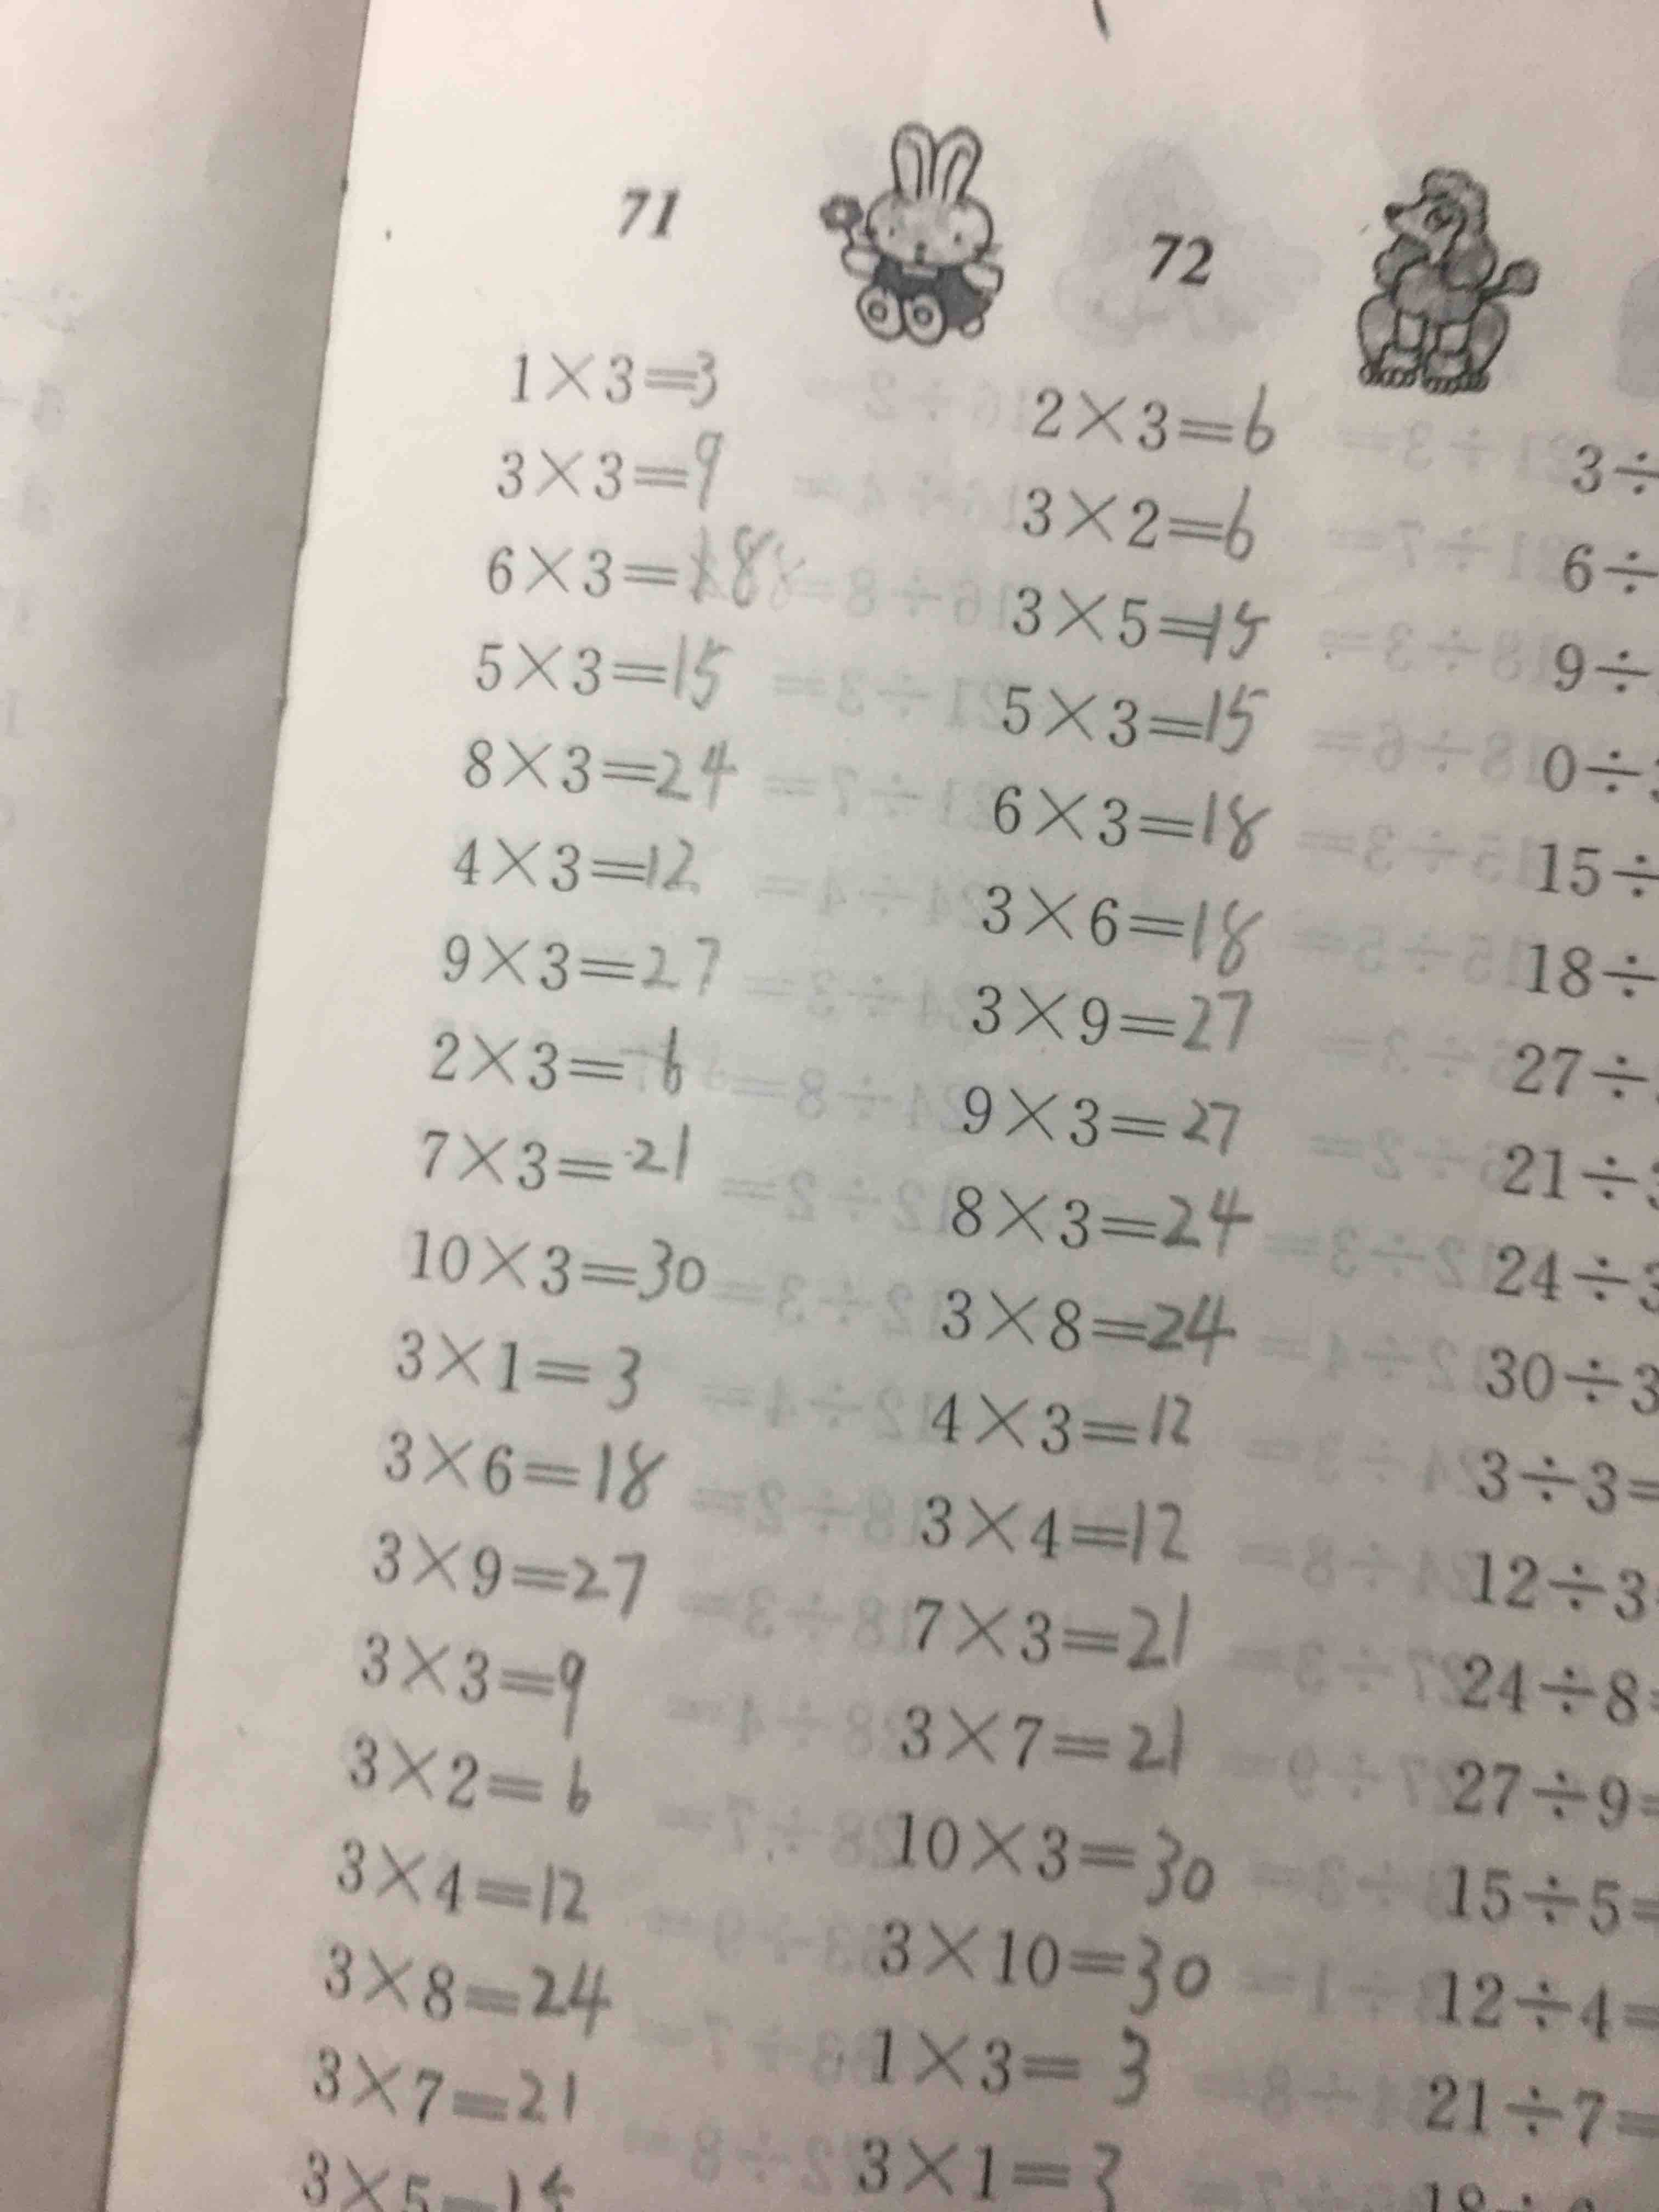 71
1×3=3
3×3=9
6×3=18
5×3=15
8×3=24
4×3=12
9×3=27
2×3=6
7×3=21
10×3=30
3×1=3
3×6=18
3×9=27
3×3=9
3×2=6
3×4=12
3×8=24
3×7=21
3×5=15
72
2×3=6
3×2=6
3×5=15
5×3=15
6×3=18
3×6=18
3×9=27
9×3=27
8×3=24
3×8=24
4×3=12
3×4=12
7×3=21
3×7=21
10×3=30
3×10=30
1×3=3
3×1=3
3÷
6÷
9÷
0÷
15÷
18÷
27÷
21÷3
24÷3
30÷3
3÷3=
12÷3
24÷8=
27÷9=
15÷5=
12÷4=
21÷7=